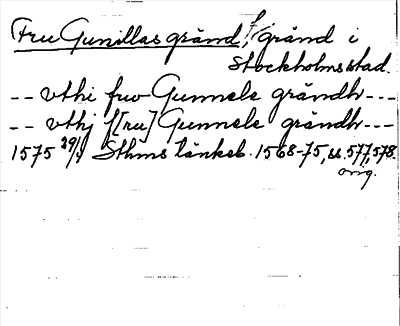 Fru Gunillas gränd, f. gränd i
Stockholms stad.
-- vthi frw Gunnele grändh ---
-- vthj f[ru] Gunnele grändh ---
1575 29/1 Sthms tänkeb. 1568-75, ss. 577, 578.
orig.